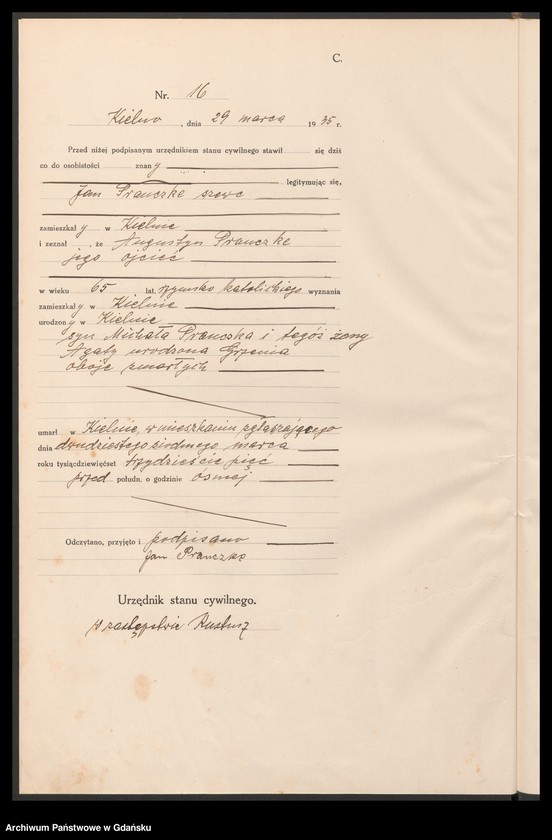 C.
Nr. 16
Kielno, dnia 29 marca 1935 r.
Przed niżej podpisanym urzędnikiem stanu cywilnego stawił się dziś
co do osobistości znany
legitymując się,
Jan Pranczke szewc
zamieszkały w Kielnie
i zeznał, że Augustyn Pranczke
jego ojciec
w wieku 65 lat, rzymsko katolickiego wyznania
zamieszkały w Kielnie
urodzony w Kielnie
syn Michała Pranczka i tegóż żony
Agaty urodzona Grzenia
oboje zmarłych
umarł w Kielnie, w mieszkaniu zgłaszającego
dnia dwudziestego siódmego marca
roku tysiącdziewięćset trzydzieście pięć
przed połudn. o godzinie ósmej
Odczytano, przyjęto i podpisano
Jan Pranczke
Urzędnik stanu cywilnego.
W zastępstwie
Archiwum Państwowe w Gdańsku